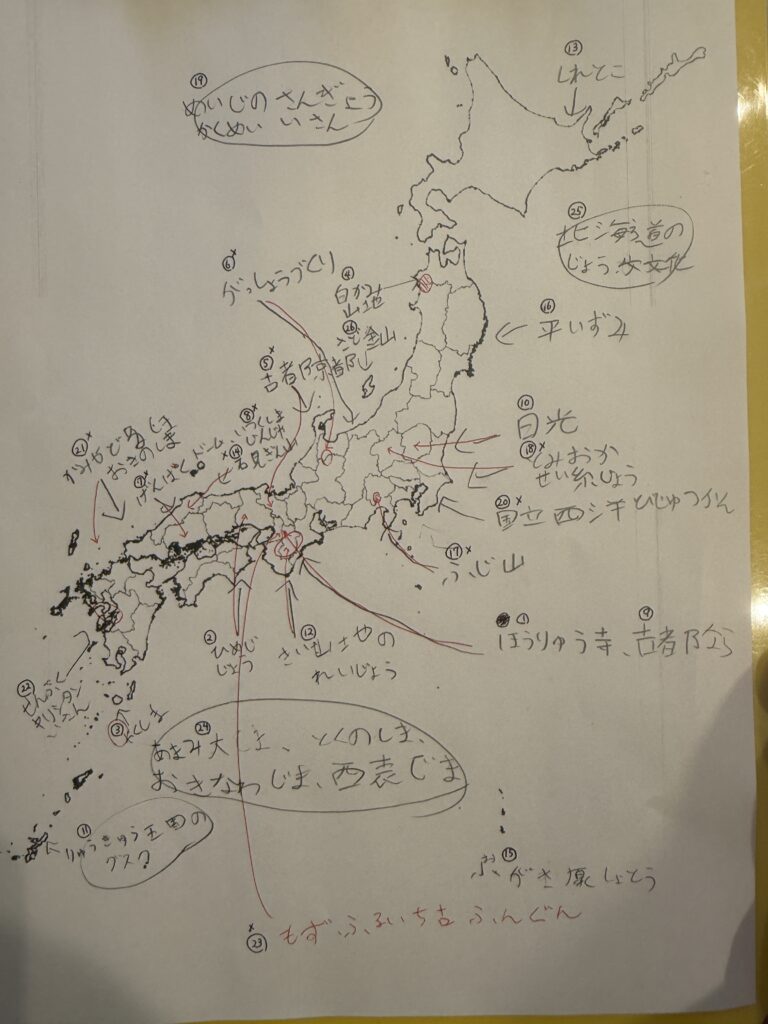 ⑬
しれとこ
⑲
めいじの さんぎょう
かくめい いさん
㉕
北海道の
じょう文文化
⑥×
がっしょうづくり
④
白かみ
山地
⑯
平いずみ
㉖
さど金山
⑤×
古都京都
⑩
日光
⑱×
とみおか
せい糸じょう
⑳×
国立西洋びじゅつかん
⑧×
いつくしま
じんじゃ
⑭×
石見ぎん山
⑦×
げんばくドーム
㉑×
かみやどる
おきのしま
⑰×
ふじ山
① ⑨
ほうりゅう寺、古都なら
②
ひめじ
じょう
⑫
きい山地の
れいじょう
㉒
せんぷく
キリシタン
いさん
③
やくしま
㉔
あまみ大しま、とくのしま、
おきなわじま、西表じま
⑪
りゅうきゅう王国の
グスク
⑮
おがさ原しょとう
×
㉓ もずふるいち古ふんぐん